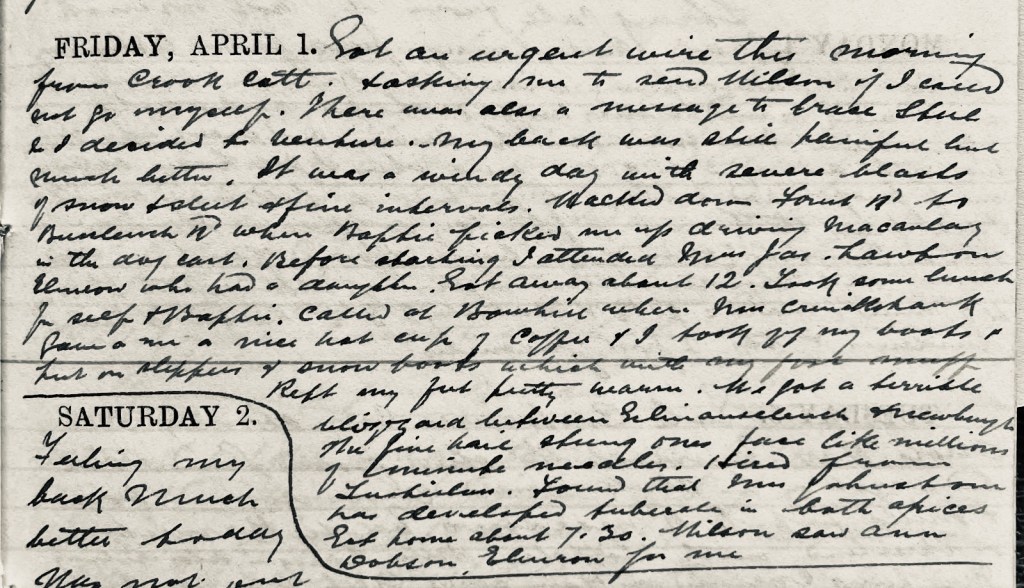 FRIDAY, APRIL 1. Got an urgent wire this morning
from Crook Catt. & asking me to send Wilson if I could
not go myself. There was also a message to brace Steel
& I decided to venture. My back was still painful but
much better. It was a windy day with severe blasts
of snow & sleet & fine intervals. Walked down Rd to
Buccleuch Rd where Baptie picked me up driving Macaulay
in the dog cart. Before starting I attended Mrs Jas. Lawson
Elmrow who had a daughter. Got away about 12. Took some lunch
for self & Baptie. Called at Bowhill where Mrs Cruikshank
gave me a nice hot cup of coffee & I took off my boots &
put on slippers & snow boots which with my foot muff
Kept my feet pretty warm. We got a terrible
blizzard between & Newburgh
the fine hail stung ones face like millions
of minute needles. Wired from
Tushielaw. Found that Mrs Johnstone
has developed tubercle in both apices
Got home about 7.30. Wilson saw Ann
Dobson, Elmrow for me
SATURDAY 2.
Feeling my
back Much
better today
Was not out